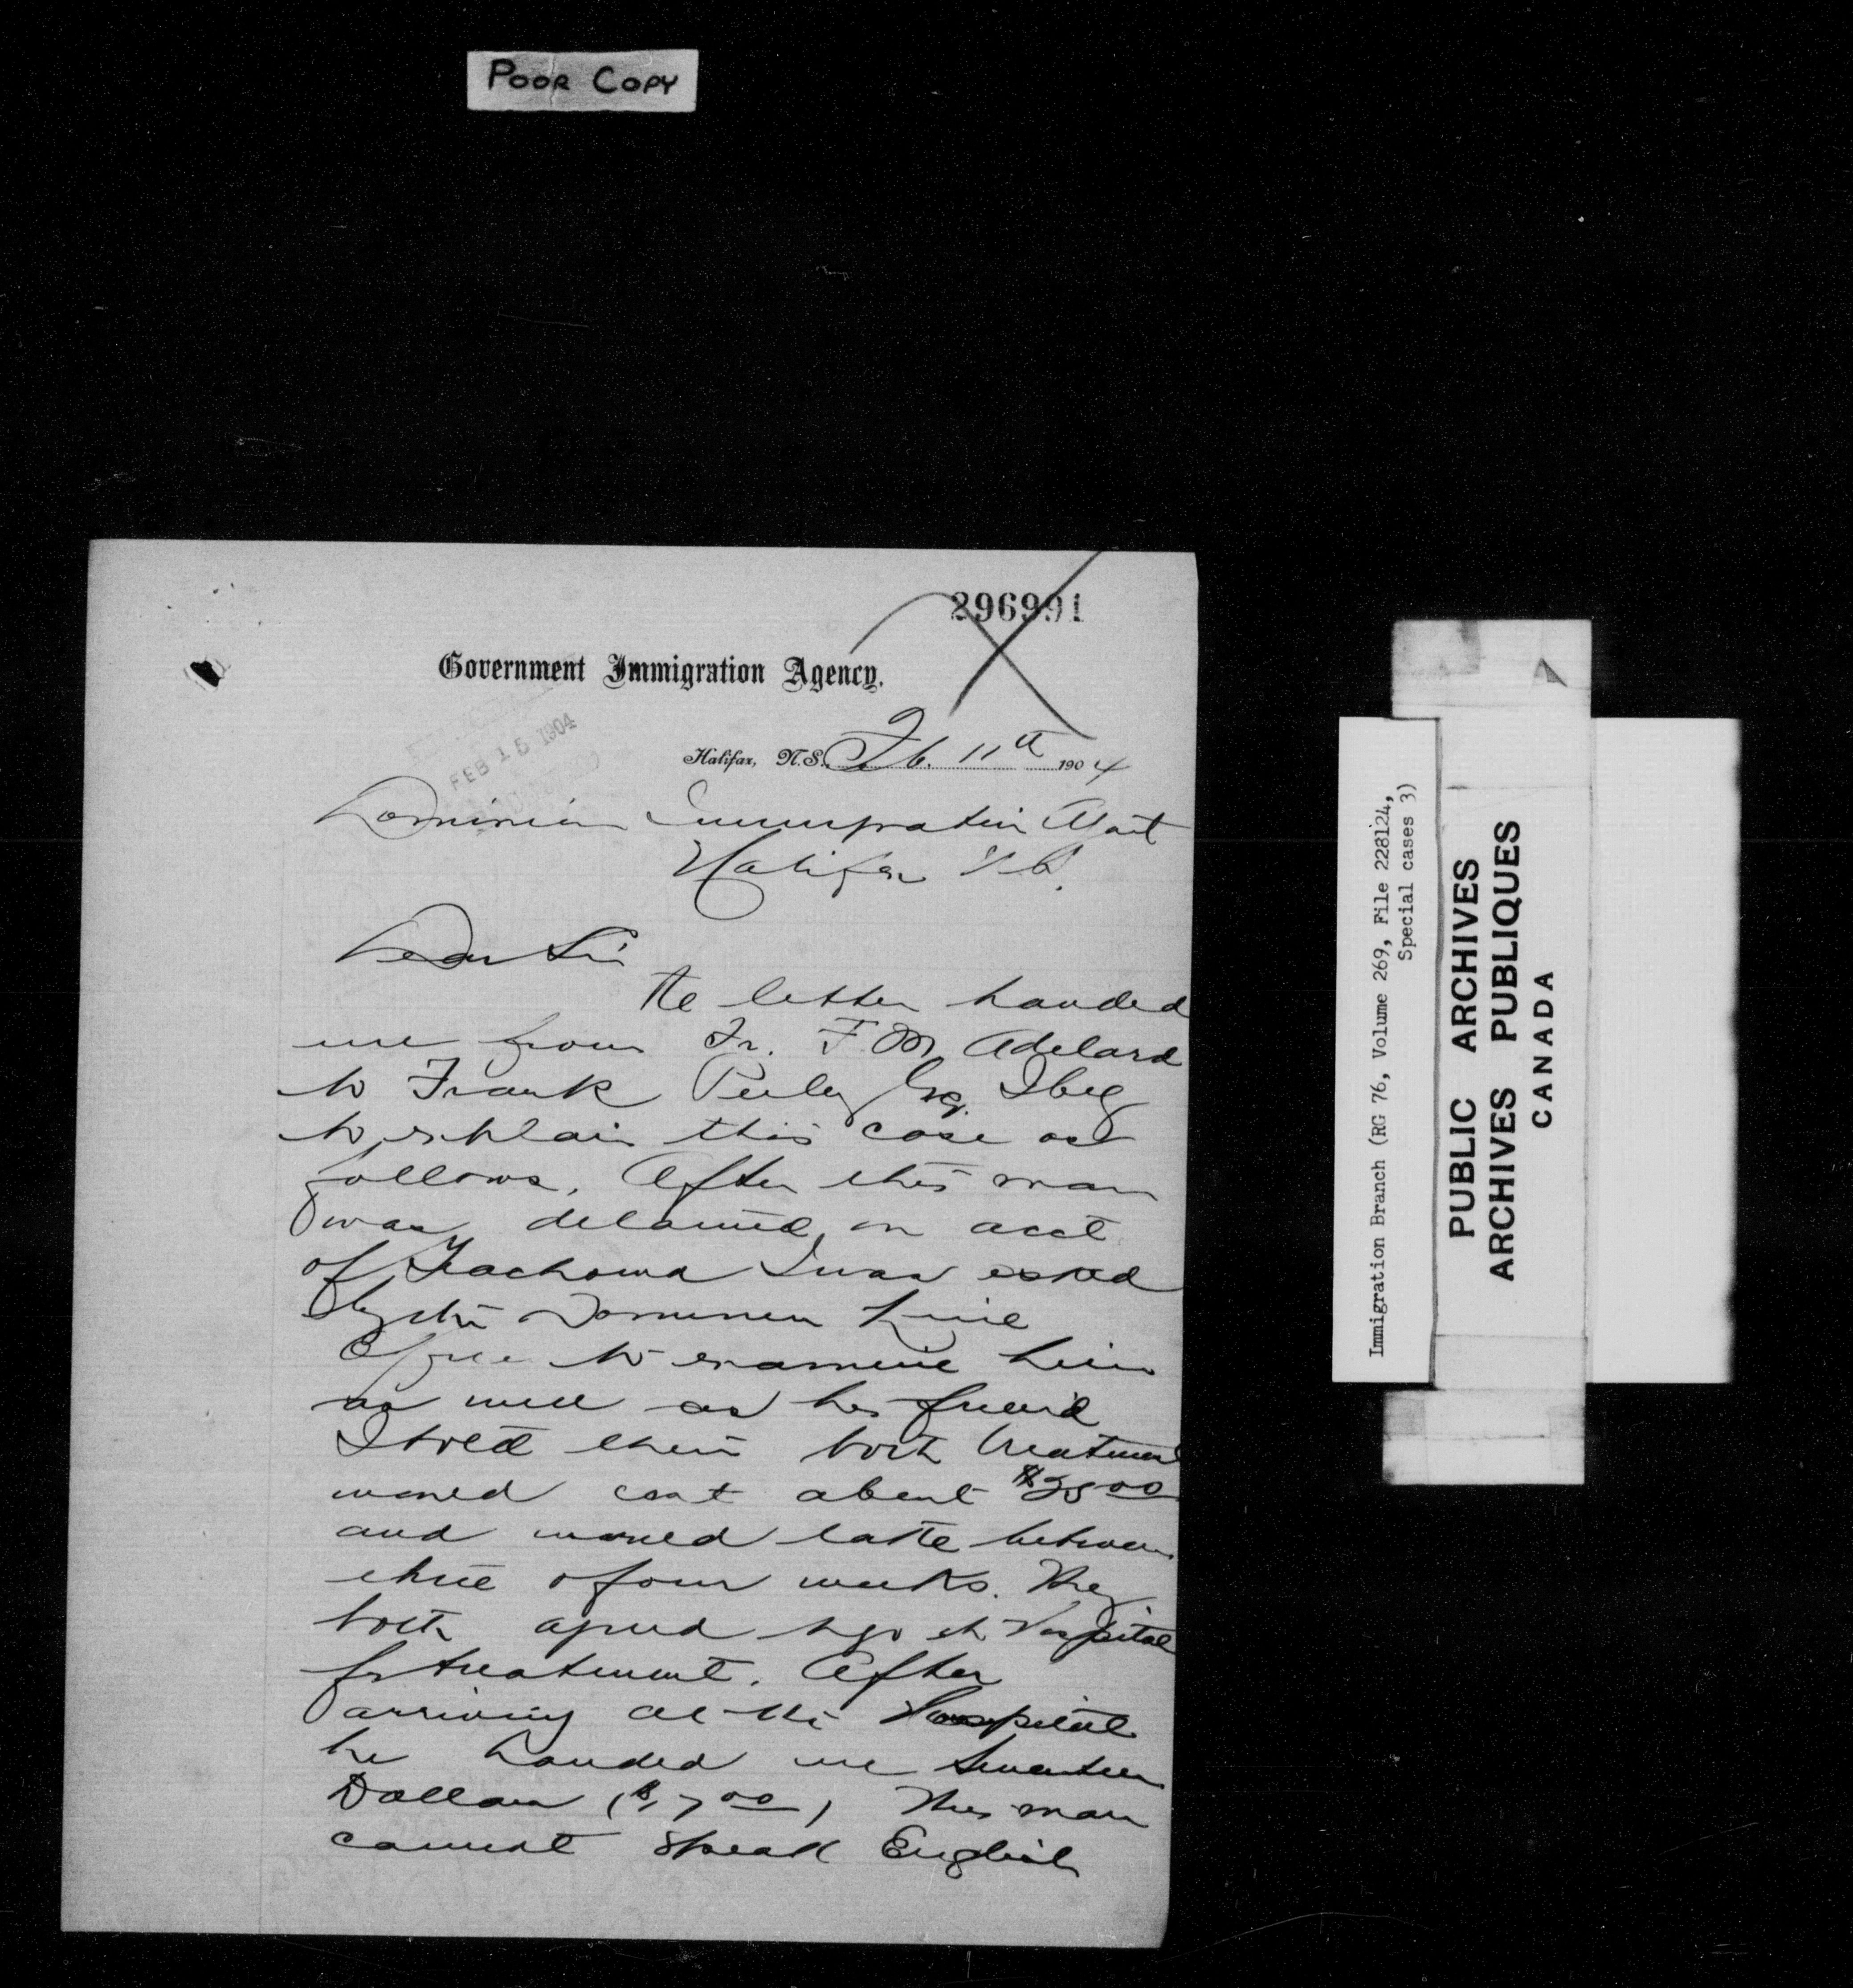 POOR COPY
296991
Government Immigration Agency.
FEB 15 1904
Halifax, N.S., Feb. 11th 1904
Dominion Immigration Agent
Halifax N.S.
Dear Sir
The letter handed
me from Fr. F. M. Adelard
to Frank Pedley Esq. I beg
to explain this case as
follows. After this man
was detained on acct
of Trachoma I was asked
by the Dominion Line
Office to examine him
as well as his friend
I told them both treatment
would cost about $25 00
and would take between
three o four weeks. They
both agreed to go to Hospital
for treatment. After
arriving at the Hospital
he handed me Seventeen
Dollars ($17 00) This man
cannot speak English
Immigration Branch (RG 76, Volume 269, File 228124,
Special cases 3)
PUBLIC ARCHIVES
ARCHIVES PUBLIQUES
CANADA